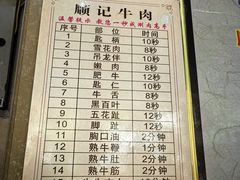 顺记牛肉
温馨提示 教您一秒成涮肉高手
序号 部位 时间
1 匙柄 10秒
2 雪花肉 8秒
3 吊龙伴 10秒
4 嫩肉 8秒
5 肥牛 12秒
6 匙仁 10秒
7 牛舌 10秒
8 黑百叶 10秒
9 五花趾 12秒
10 脚趾 12秒
11 胸口油 2分钟
12 熟牛鞭 1分钟
13 熟牛肚 1分钟
14 熟牛筋 1分钟
15